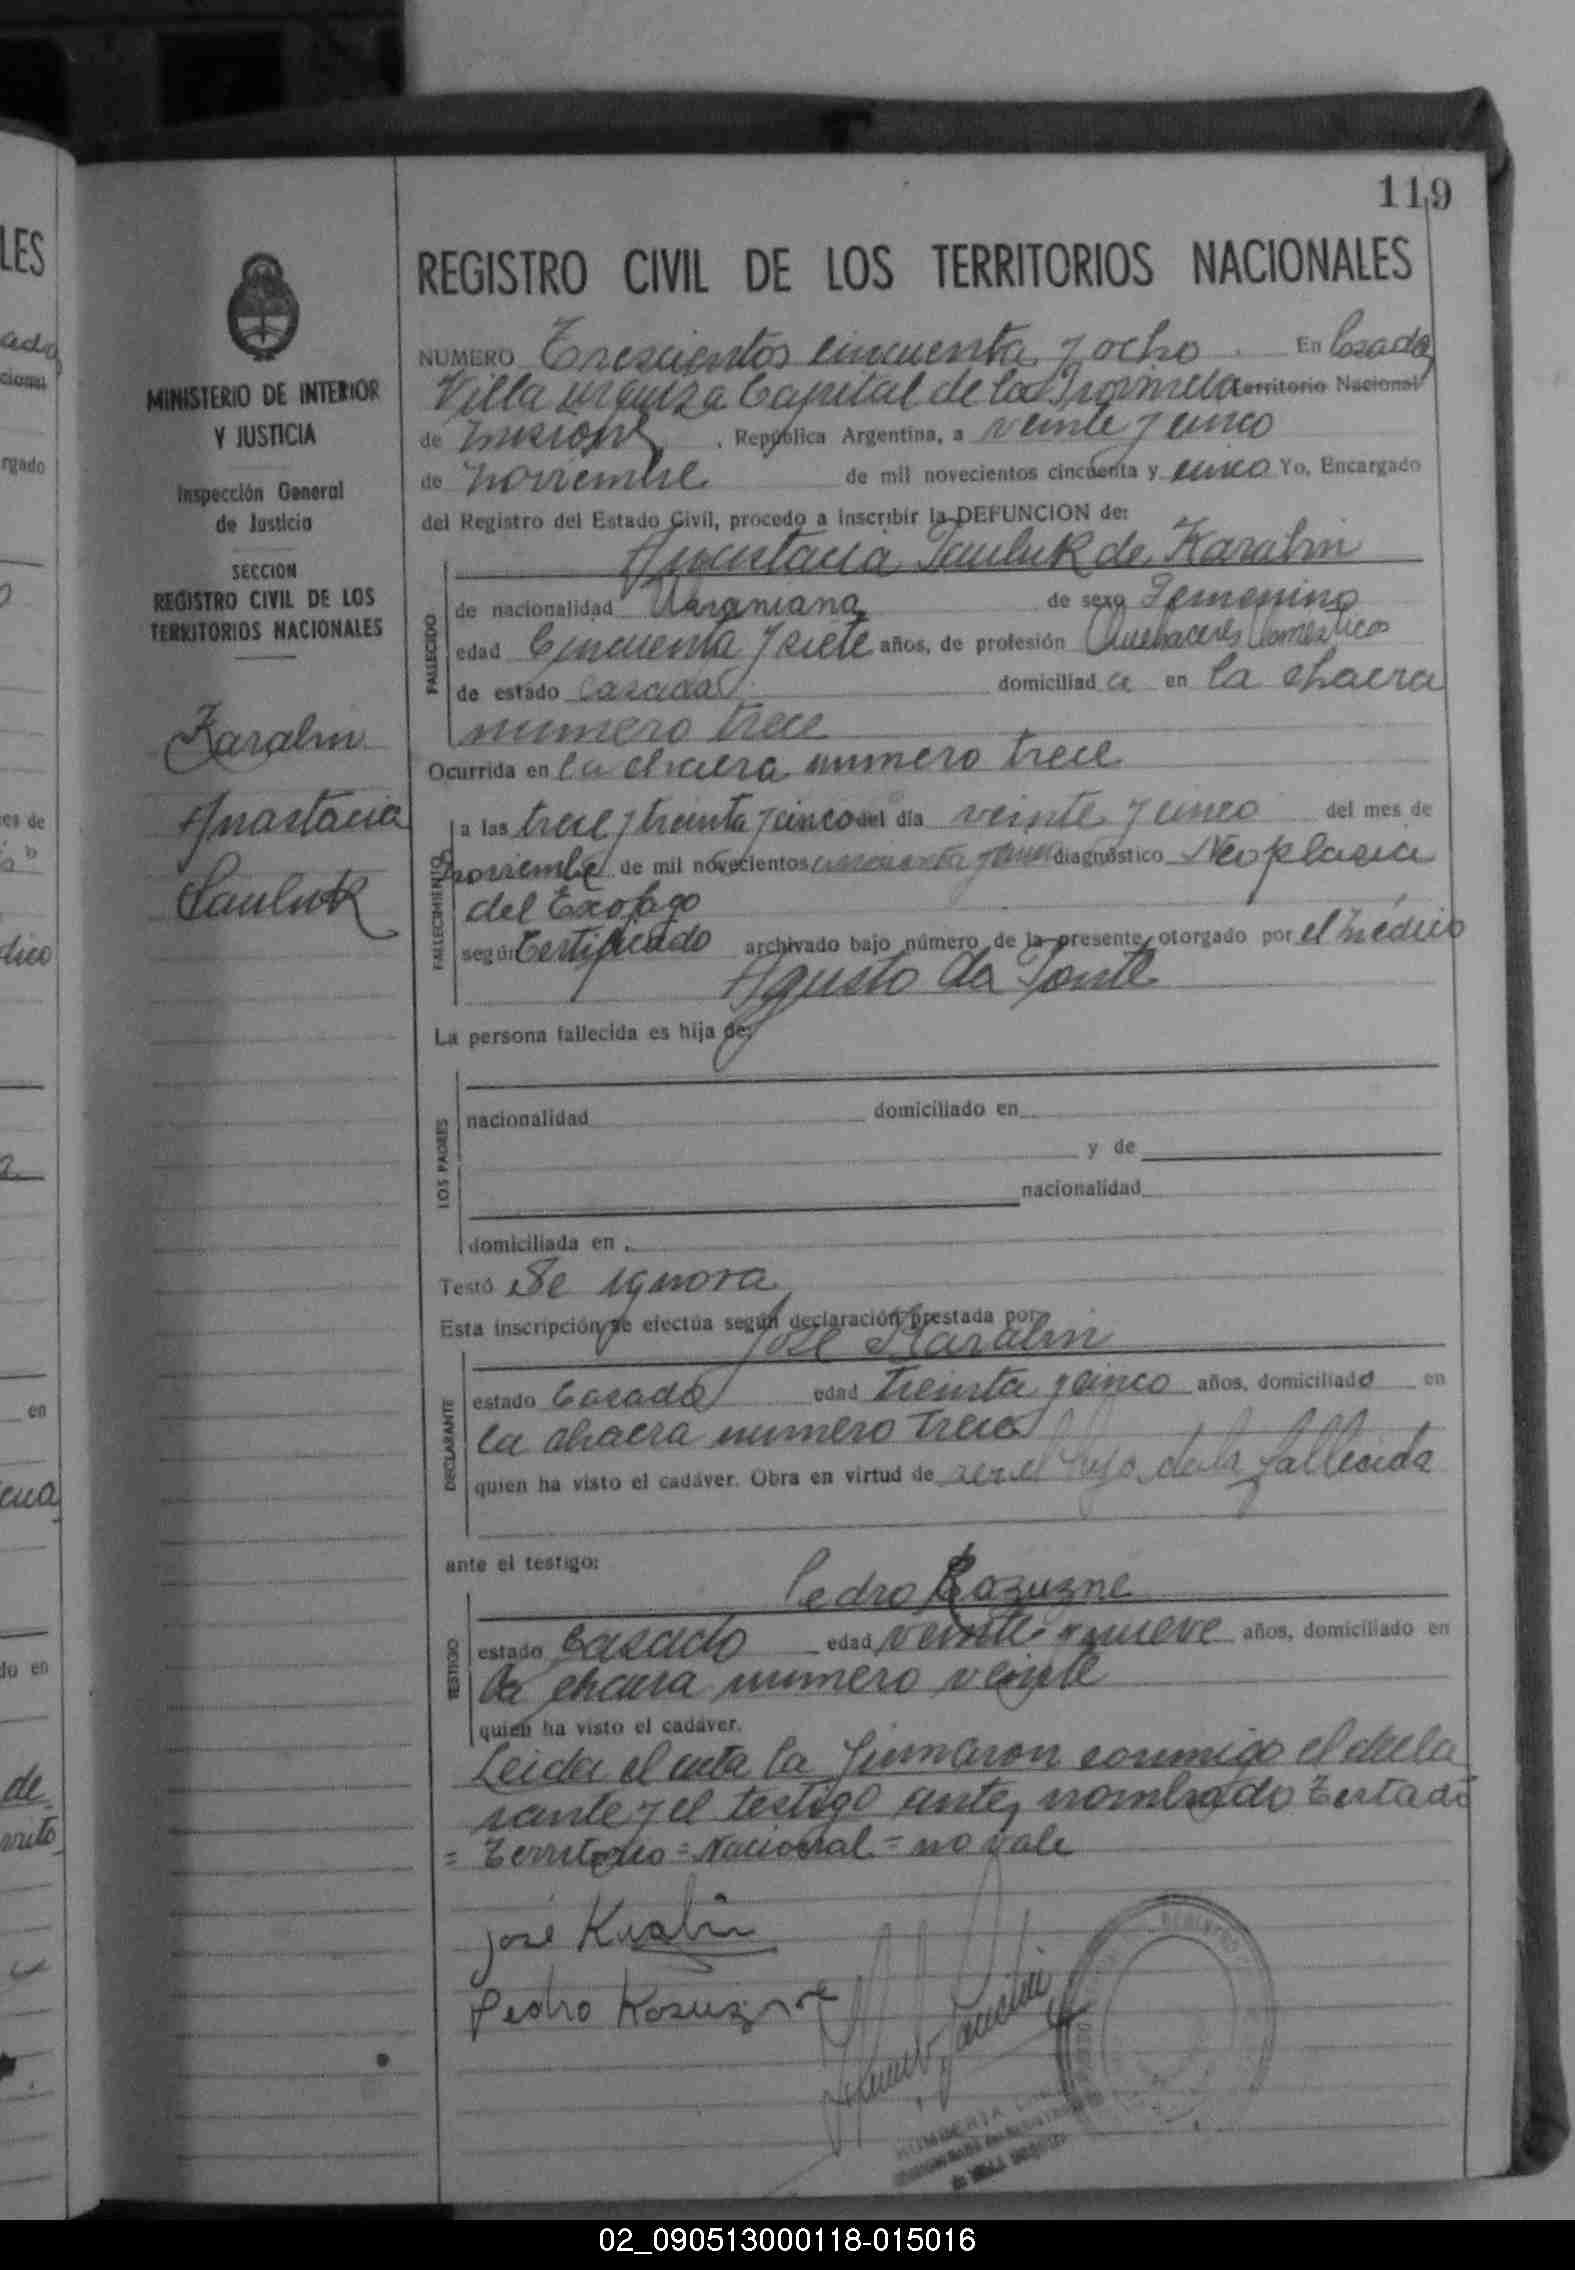 119
LES
REGISTRO CIVIL DE LOS TERRITORIOS NACIONALES
MINISTERIO DE INTERIOR
Y JUSTICIA
Inspección General
de Justicia
SECCION
REGISTRO CIVIL DE LOS
TERRITORIOS NACIONALES
Karabin
Anastacia
Pauluk
NUMERO Trescientos cincuenta y ocho En Posadas
Villa Urquiza Capital de la Provincia Territorio Nacional
de Misiones, República Argentina, a veinte y cinco
de noviembre de mil novecientos cincuenta y cinco Yo, Encargado
del Registro del Estado Civil, procedo a inscribir la DEFUNCION de:
Anastacia Pauluk de Karabin
FALLECIDO
de nacionalidad Ukraniana de sexo Femenino
edad Cincuenta y siete años, de profesión Quehaceres Domesticos
de estado casada domiciliad a en la chacra
numero trece
Ocurrida en la chacra numero trece
FALLECIMIENTO
a las trece y treinta y cinco del día veinte y cinco del mes de
noviembre de mil novecientos cincuenta y cinco diagnóstico Neoplasia
del Exofago
según Certificado archivado bajo número de la presente, otorgado por el médico
Agusto da Ponte
La persona fallecida es hija de:
LOS PADRES
nacionalidad domiciliado en
y de
nacionalidad
domiciliada en
Testó Se ignora
Esta inscripción se efectúa según declaración prestada por
José Karabin
DECLARANTE
estado Casado edad treinta y cinco años, domiciliado en
la chacra numero trece
quien ha visto el cadáver. Obra en virtud de ser el hijo de la fallecida
ante el testigo:
Pedro Kozuzne
TESTIGO
estado Casado edad veinte y nueve años, domiciliado en
la chacra numero veinte
quien ha visto el cadáver.
Leida el acta la firmaron conmigo el decla
rante y el testigo antes nombrado Testado
= Territorio = Nacional = no vale
José Karabin
Pedro Kozuzne
02_090513000118-015016